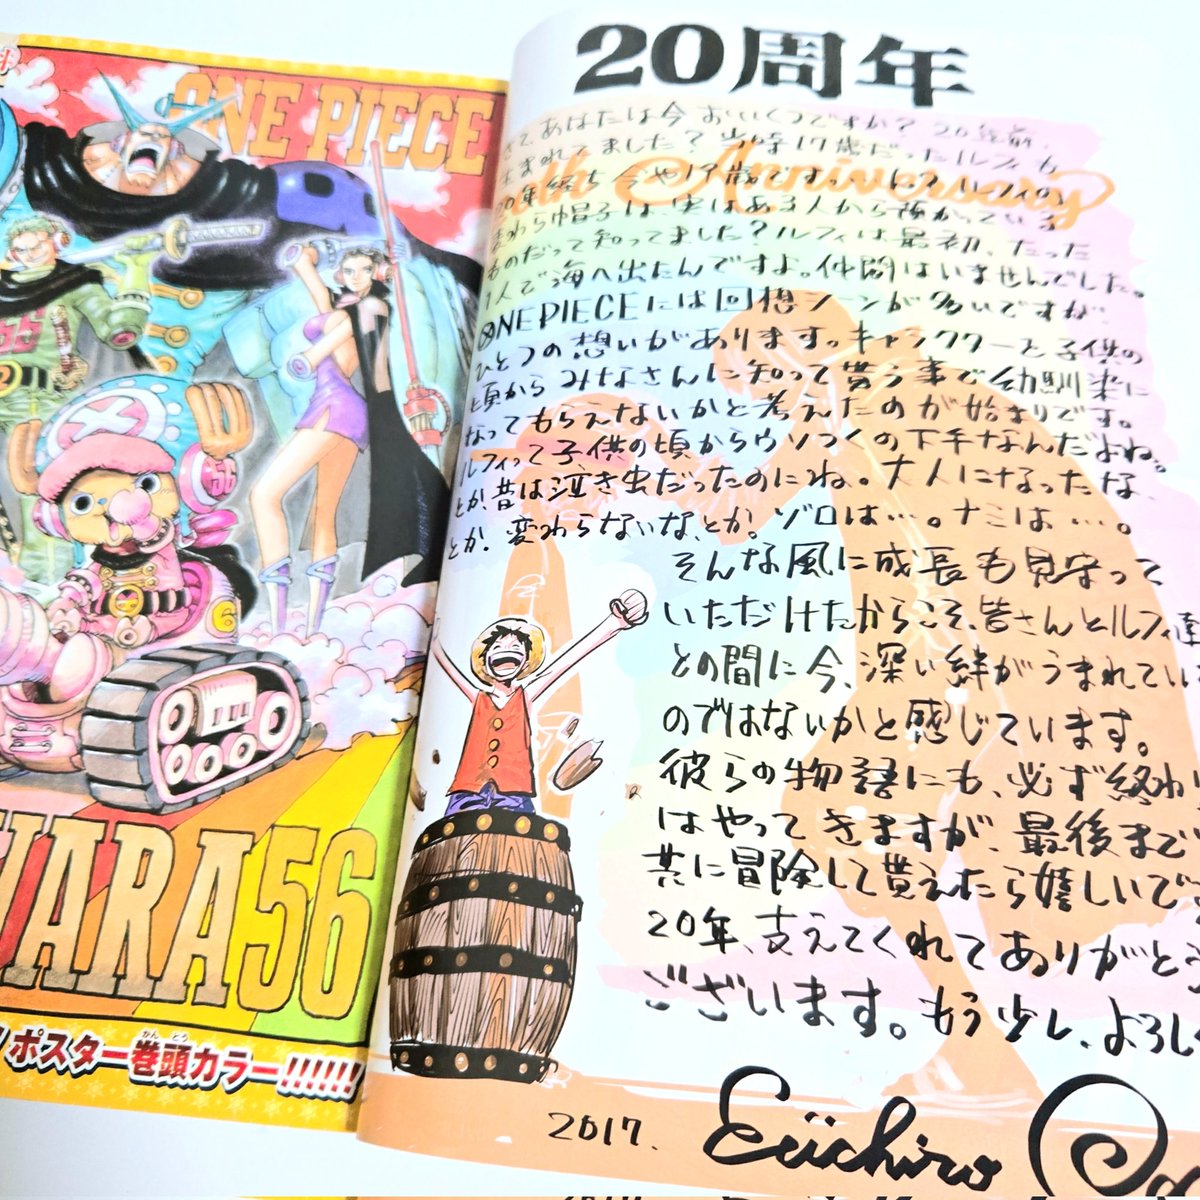 ONE PIECE
56
56
6
ARA56
ポスター巻頭カラー!!!!!!
かん とう
20周年
Anniversary
さて、あなたは今おいくつですか? 20年前、
生まれてました? 当時17歳だったルフィも
20年経ち今や19歳です。ルフィの
麦わら帽子は、実はある人から預かっている
ものだって知ってました?ルフィは最初、たった
1人で海へ出たんですよ。仲間はいませんでした。
ONE PIECEには回想シーンが多いですが、
ひとつの想いがあります。キャラクターと子供の
頃からみなさんに知って貰う事で幼馴染に
なってもらえないかと考えたのが始まりです。
ルフィって子供の頃からウソつくの下手なんだよね。
とか!昔は泣き虫だったのにね。大人になったな、
とか。変わらないな、とか。ゾロは…。ナミは…。
そんな風に成長も見守って
いただけたからこそ、皆さんとルフィ達
との間に今、深い絆がうまれてい
のではないかと感じています。
彼らの物語にも、必ず終わ
はやってきますが、最後まで
共に冒険して貰えたら嬉しいで
20年、支えてくれてありがとう
ございます。もう少し、よろし
2017. Eiichiro Od